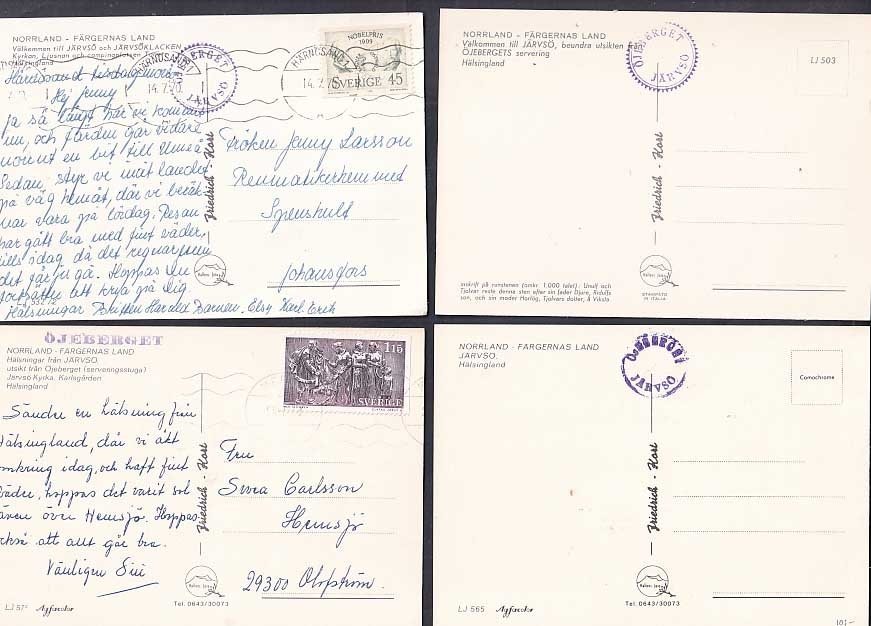 NORRLAND - FÄRGERNAS LAND
Välkommen till JÄRVSÖ och JÄRVSÖKLACKEN
Kyrkan, Ljusnan och campingplatsen
Hälsingland
HÄRNÖSAND 1
14.7.70
ÖJEBERGET
JÄRVSÖ
NOBELPRIS
1909
SVERIGE 45
Härnösand tisdagsmorgon
Hej Jenny
Ja så långt har vi kommit
nu, och färden går vidare
norrut en bit till Umeå
Sedan styr vi inåt landet
på väg hemåt, där vi beräk-
nar vara på lördag. Resan
har gått bra med fint väder,
tills idag då det regnar, men
det går ju gå. Hoppas Du
fortsätter att krya på Dig
Hälsningar Britten Harald Barnen. Elsy Karl-Erik
Fröken Jenny Larsson
Reumatikerhemmet
Spenshult
Johansfors
Friedrich - Kort
NORRLAND - FÄRGERNAS LAND
Välkommen till JÄRVSÖ, beundra utsikten från
ÖJEBERGETS servering
Hälsingland
ÖJEBERGET
JÄRVSÖ
LJ 503
Friedrich - Kort
STAMPATO
IN ITALIA
Inskrift på runstenen (omkr. 1.000 talet). Unulf och
Tjalvar reste denna sten efter sin fader Djure, Rolulfs
son, och sin moder Horlög, Tjalvars dotter, å Viksta.
ÖJEBERGET
NORRLAND - FÄRGERNAS LAND
Hälsningar från JÄRVSÖ,
utsikt från Öjeberget (serveringsstuga)
Järvsö Kyrka, Karlsgården
Hälsingland
115
SVERIGE
Sänder en hälsning från
Hälsingland, där vi åkt
omkring idag, och haft fint
väder, hoppas det varit sol
även över Hemsjö. Hoppas
också att allt går bra.
Vänligen Siri
Fru
Svea Carlsson
Hemsjö
29300 Olofström.
Friedrich - Kort
Tel. 0643/30073
LJ 57 Agfacolor
NORRLAND - FÄRGERNAS LAND
JÄRVSÖ.
Hälsingland
ÖJEBERGET
JÄRVSÖ
Comochrome
Friedrich - Kort
Tel. 0643/30073
LJ 565 Agfacolor
10:-